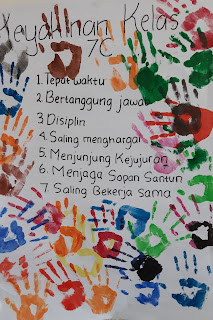 Keyakinan Kelas
7C
1. Tepat waktu
2 Bertanggung jawab
3 Disiplin
4. Saling menghargai
5. Menjunjung Kejujuran
6. Menjaga Sopan Santun
7 Saling Bekerja Sama